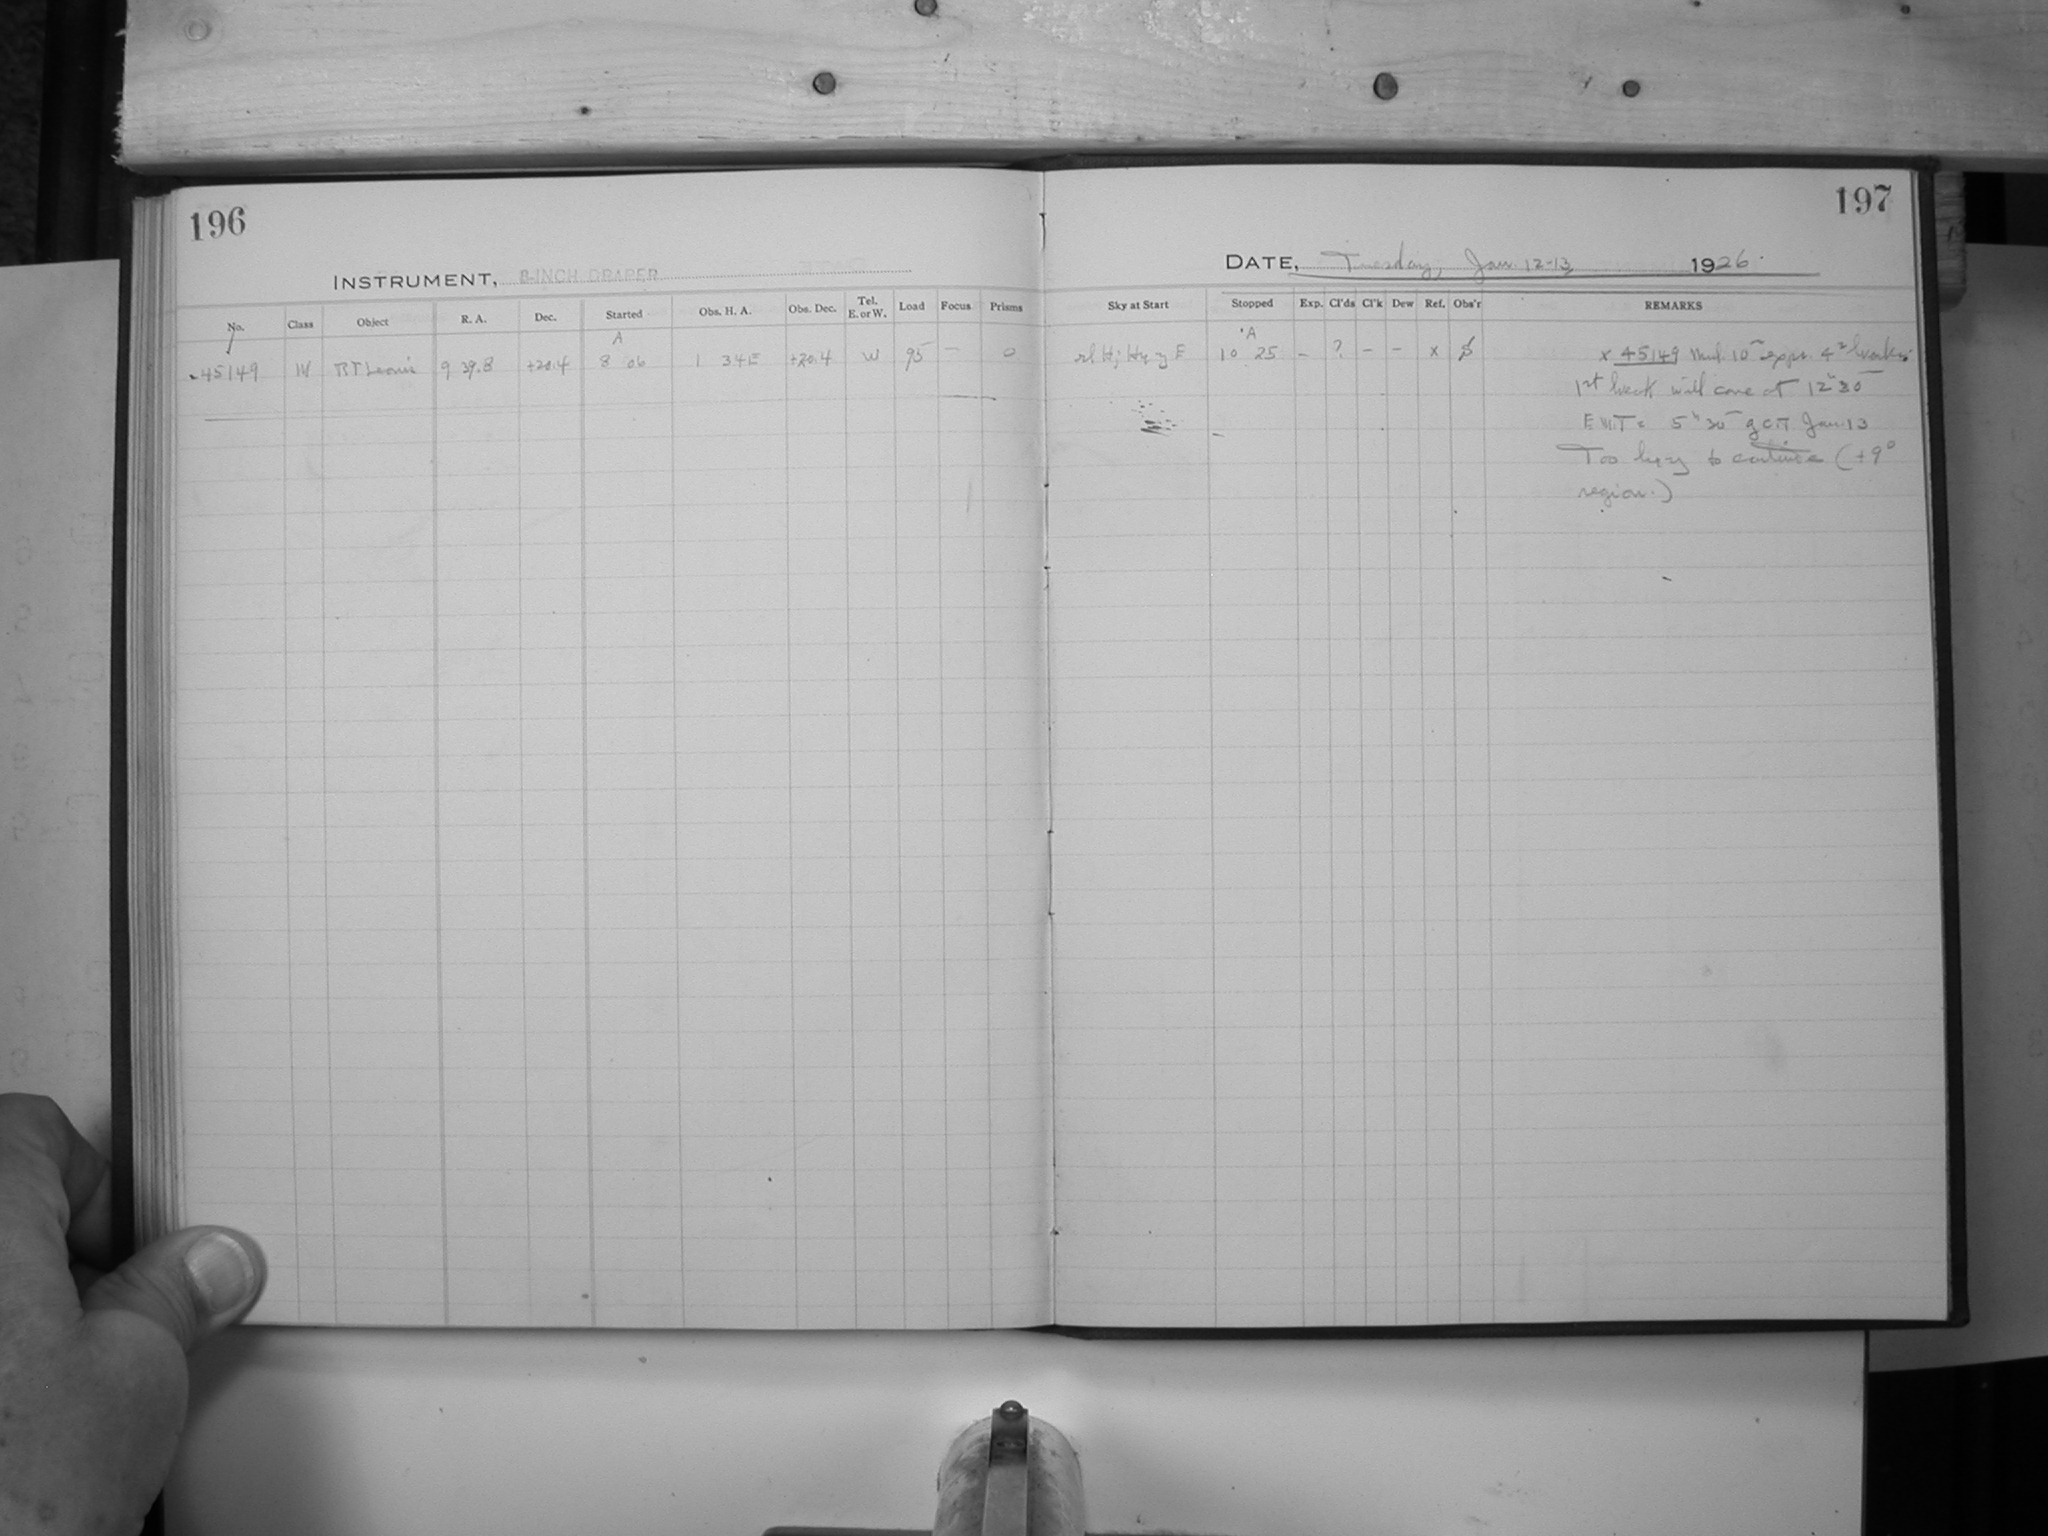 196
INSTRUMENT, 8-INCH DRAPER
No. Class Object R. A. Dec. Started Obs. H. A. Obs. Dec. Tel. E. or W. Load Focus Prisms
A
45149 RT Leonis 9 39.8 +20.4 8 06 1 34E +20.4 W 95 — 0
197
DATE, Tuesday, Jan. 12-13 1926
Sky at Start Stopped Exp. Cl'ds Cl'k Dew Ref. Obs'r REMARKS
A
10 25 – ? – – x x 45149 Mul. 10m exps. 4s breaks
1st break will come at 12h 30m
EMT = 5h 30m GCT Jan. 13
Too hazy to continue (+9°
region.)